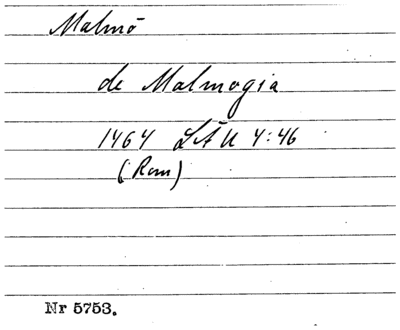 Malmö
de Malmogia
1464 LÄU 4:46
(Rom)
Nr 5753.